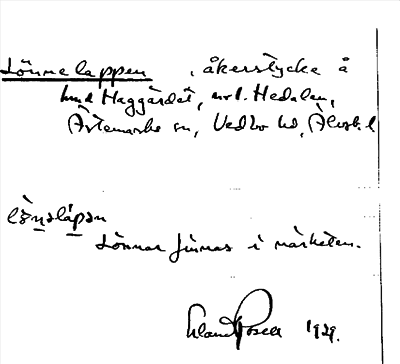 Lönnelappen, åkerstycke å
lund Haggärdet, nrl. Hedalen,
Ärtemarks sn, Vedbo hd, Älvsb. l
lön̲əláp̲ən
Lönnar finnas i närheten.
Erland Rosell 1929.